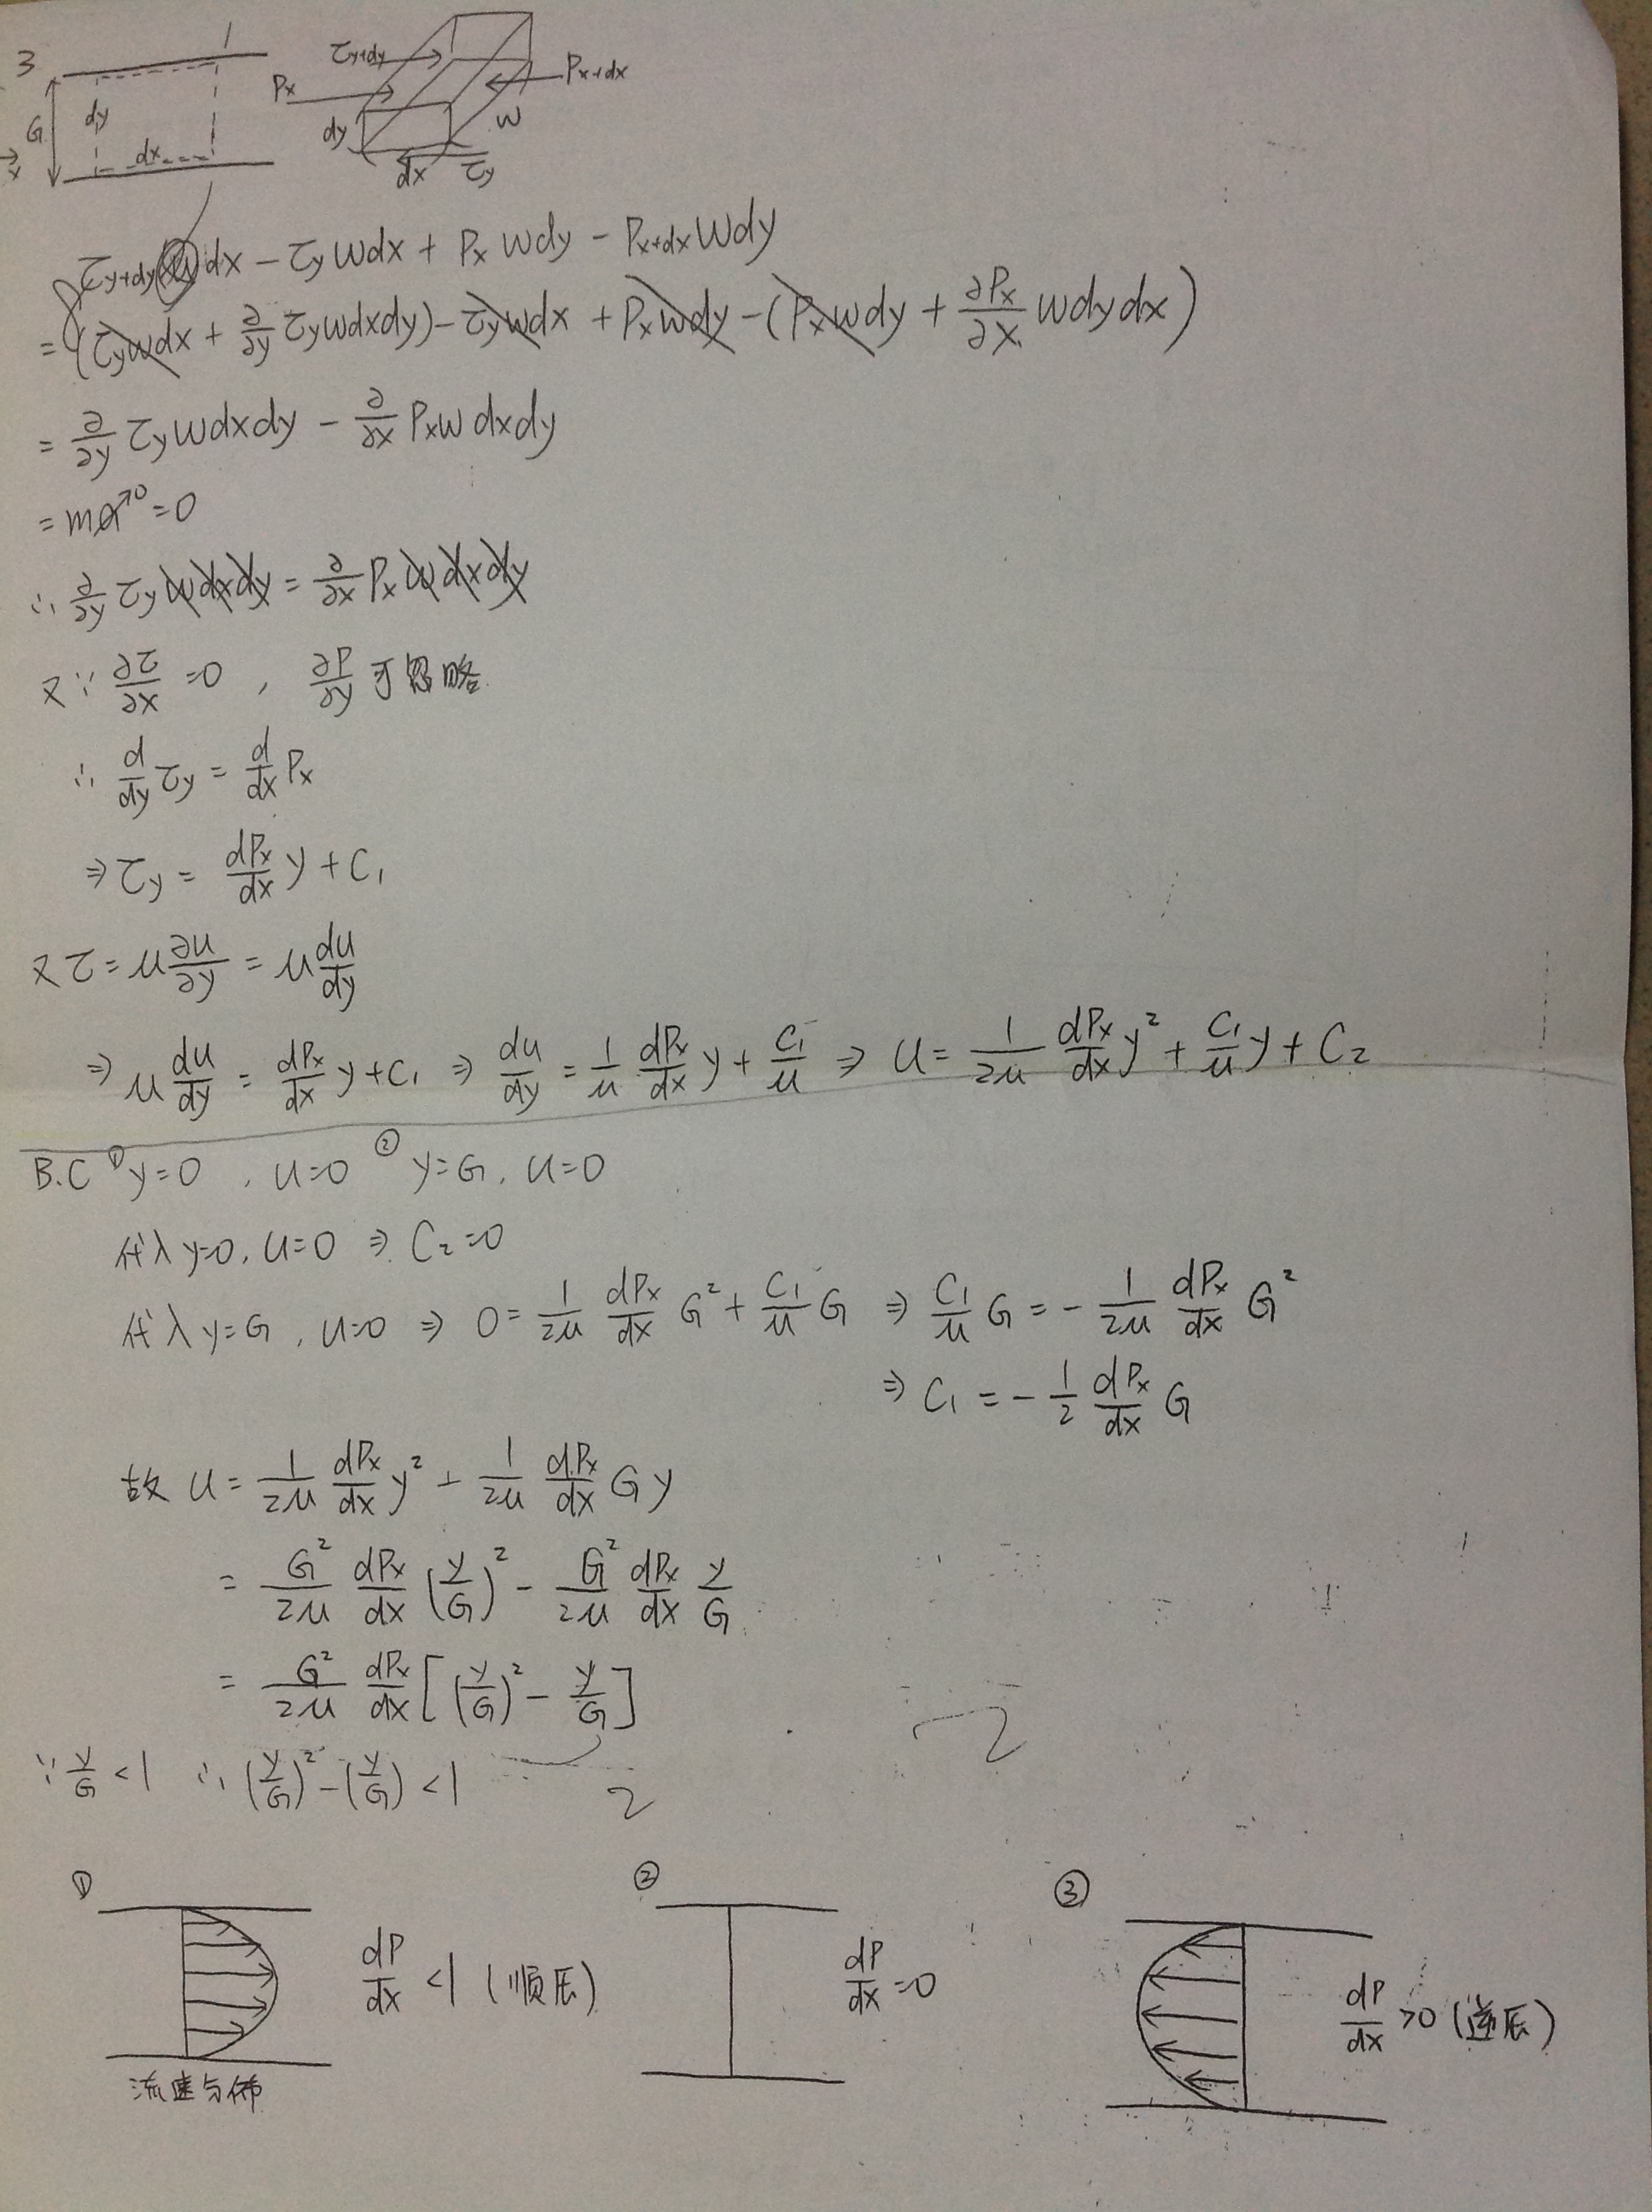 3
G dy dx x
τy+dy Px Px+dx dy dx τy W
τy+dy W dx - τy W dx + Px W dy - Px+dx W dy
= (τy W dx + ∂/∂y τy W dx dy) - τy W dx + Px W dy - (Px W dy + ∂Px/∂x W dy dx)
= ∂/∂y τy W dx dy - ∂/∂x Px W dx dy
= ma→0 = 0
∴ ∂/∂y τy W dx dy = ∂/∂x Px W dx dy
又∵ ∂τ/∂x = 0 , ∂P/∂y 可忽略
∴ d/dy τy = d/dx Px
⇒ τy = dPx/dx y + C₁
又 τ = μ ∂u/∂y = μ du/dy
⇒ μ du/dy = dPx/dx y + C₁ ⇒ du/dy = 1/μ dPx/dx y + C₁/μ ⇒ u = 1/2μ dPx/dx y² + C₁/μ y + C₂
B.C ① y=0 , u=0 ② y=G , u=0
代入 y=0, u=0 ⇒ C₂=0
代入 y=G , u=0 ⇒ 0 = 1/2μ dPx/dx G² + C₁/μ G ⇒ C₁/μ G = - 1/2μ dPx/dx G²
⇒ C₁ = - 1/2 dPx/dx G
故 u = 1/2μ dPx/dx y² - 1/2μ dPx/dx G y
= G²/2μ dPx/dx (y/G)² - G²/2μ dPx/dx y/G
= G²/2μ dPx/dx [(y/G)² - y/G]
∵ y/G < 1 ∴ (y/G)² - (y/G) < 1
① dP/dx < 1 (順压)
流速分佈
② dP/dx = 0
③ dP/dx > 0 (逆压)